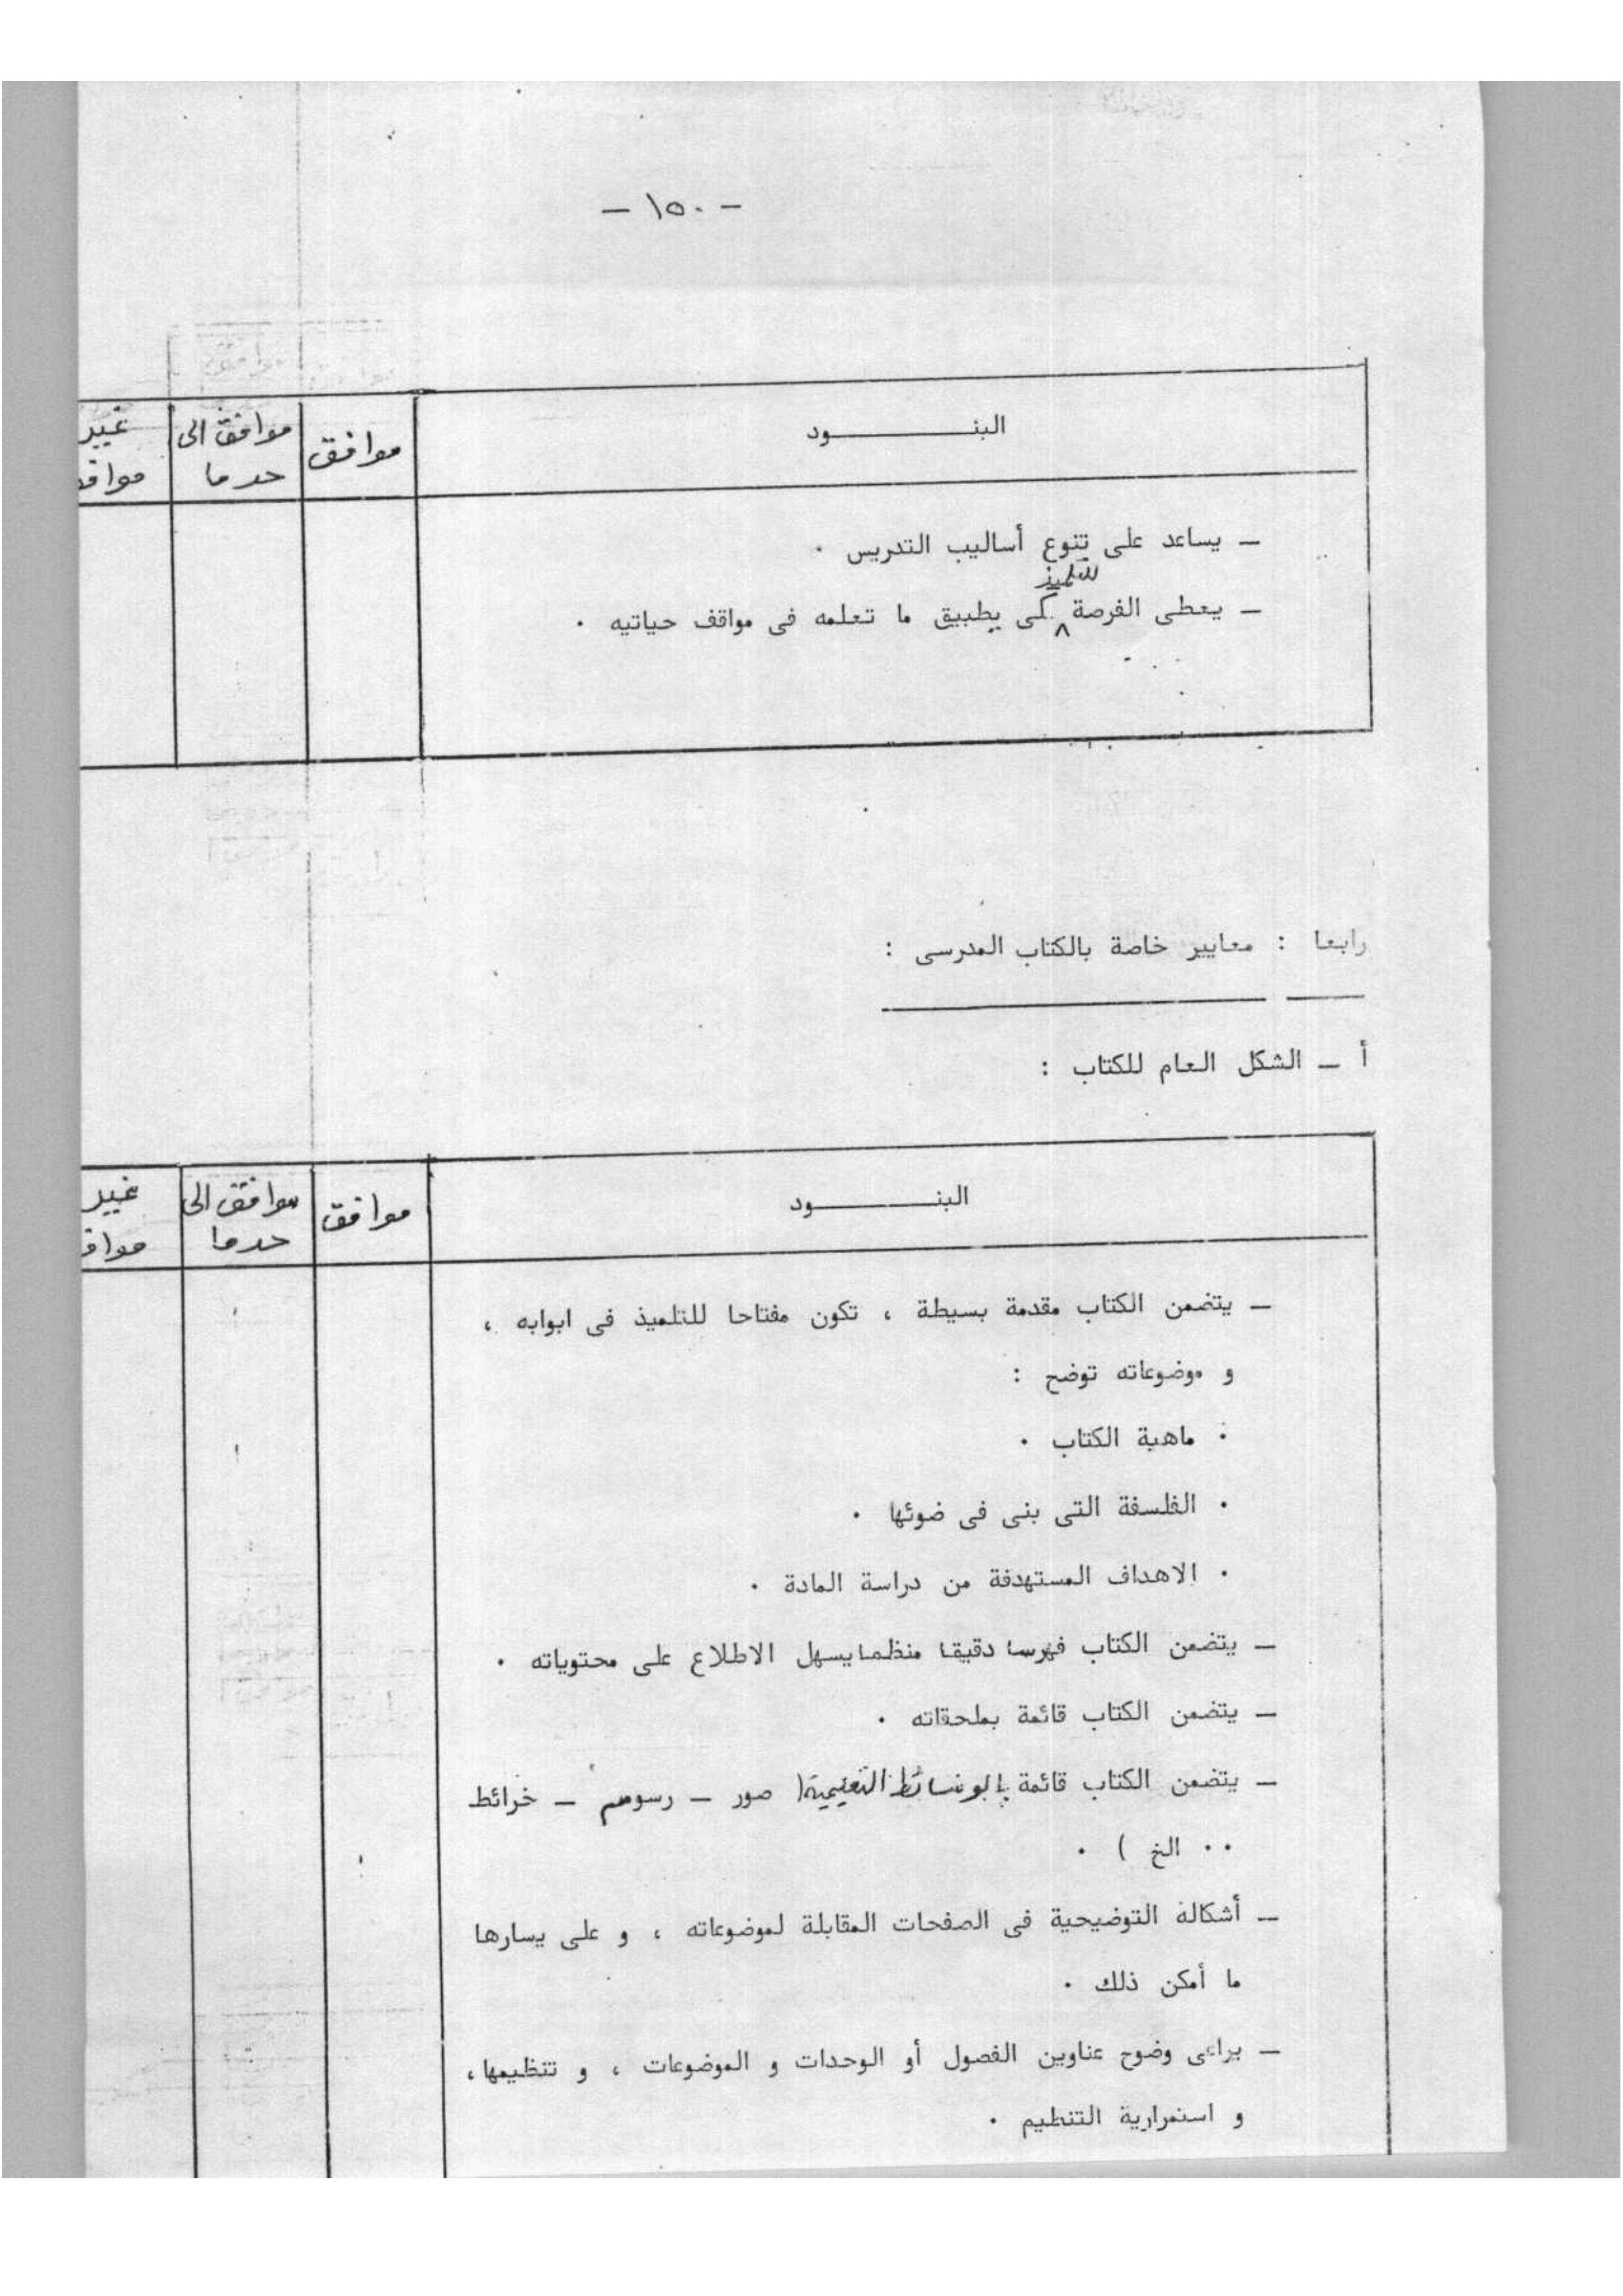 - ١٥٠ -
البنـــــــــود موافق موافق الى غير
حد ما موافق
ـ يساعد على تنوع أساليب التدريس ٠
للتلميذ
ـ يعطى الفرصة لكى يطبيق ما تعلمه فى مواقف حياتيه ٠
رابعا : معايير خاصة بالكتاب المدرسى :
أ ـ الشكل العام للكتاب :
البنـــــــــود موافق موافق الى غير
حد ما مواف
ـ يتضمن الكتاب مقدمة بسيطة ، تكون مفتاحا للتلميذ فى ابوابه ،
و موضوعاته توضح :
٠ ماهية الكتاب ٠
٠ الفلسفة التى بنى فى ضوئها ٠
٠ الاهداف المستهدفة من دراسة المادة ٠
ـ يتضمن الكتاب فهرسا دقيقا منظما يسهل الاطلاع على محتوياته ٠
ـ يتضمن الكتاب قائمة بملحقاته ٠
ـ يتضمن الكتاب قائمة بالوسائط التعليمية ( صور ـ رسوم ـ خرائط
٠٠ الخ ) ٠
ـ أشكاله التوضيحية فى الصفحات المقابلة لموضوعاته ، و على يسارها
ما أمكن ذلك ٠
ـ يراعى وضوح عناوين الفصول أو الوحدات و الموضوعات ، و تنظيمها ،
و استمرارية التنظيم ٠